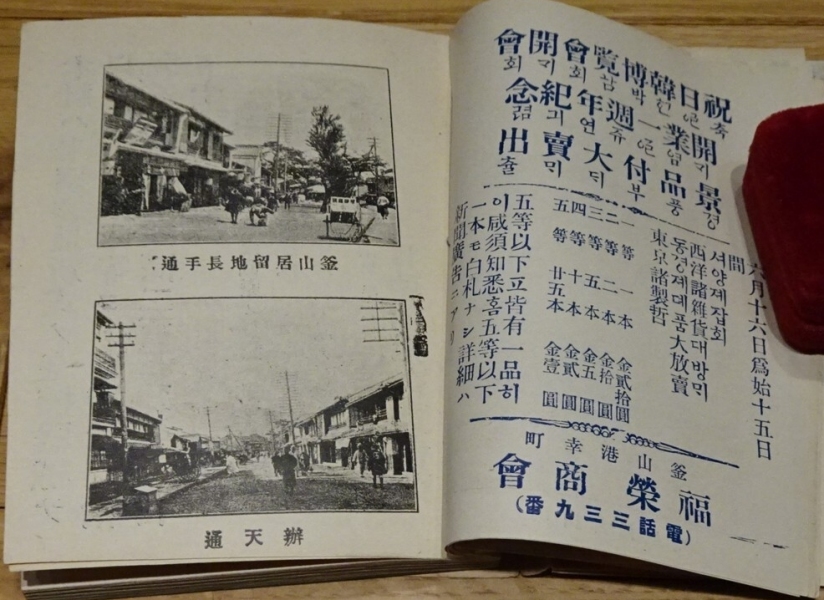 祝日韓博覧會開會
開業一週年紀念
景品付大賣出
六月十六日爲始十五日間
서양제잡회
西洋諸雜貨대방매
동경제대품大放賣
東京諸製哲
一等 一本 金貳拾圓
二等 二本 金拾圓
三等 五本 金五圓
四等 十本 金貳圓
五等 廿五本 金壹圓
五等以下立皆有一品히
이咸須知悉홈五等以下
一本モ白札ナシ詳細ハ
新聞廣告ニアリ
釜山港幸町
福榮商會
(電話三三九番)
釜山居留地長手通
辨天通